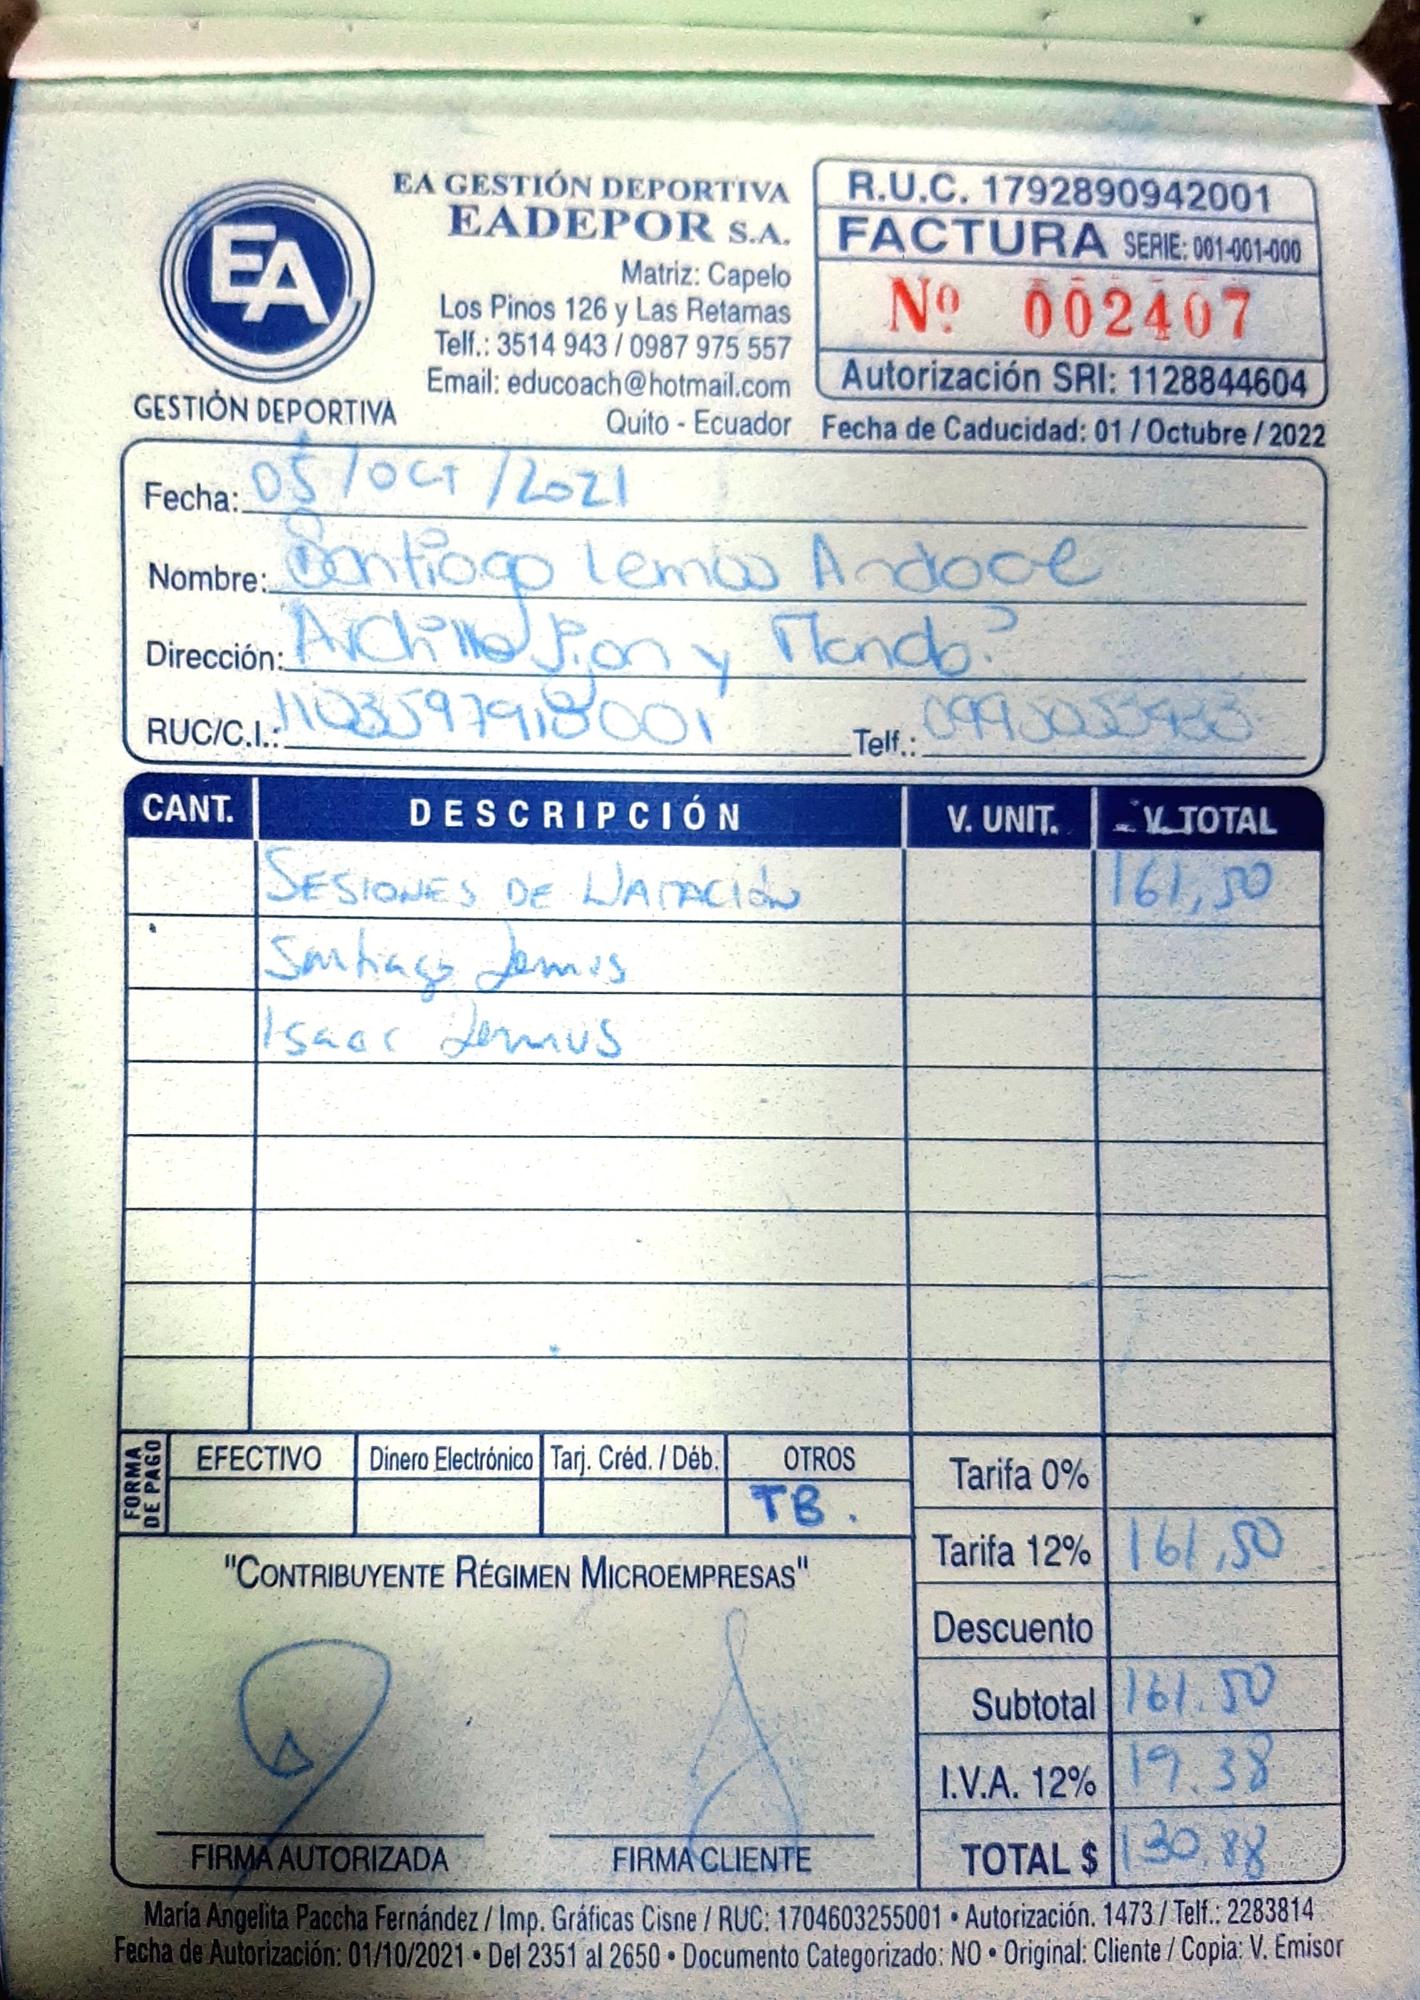 EA GESTIÓN DEPORTIVA
EADEPOR S.A.
Matriz: Capelo
Los Pinos 126 y Las Retamas
Telf.: 3514 943 / 0987 975 557
Email: educoach@hotmail.com
Quito - Ecuador
EA
GESTIÓN DEPORTIVA
R.U.C. 1792890942001
FACTURA SERIE: 001-001-000
Nº 002407
Autorización SRI: 1128844604
Fecha de Caducidad: 01 / Octubre / 2022
Fecha: 05/OCT/2021
Nombre: Santiago Lemus
Dirección: y
RUC/C.I.: 1103597918001 Telf.:
CANT. DESCRIPCIÓN V. UNIT. V. TOTAL
SESIONES DE NATACIÓN 161,50
Santiago Lemus
Isaac Lemus
FORMA DE PAGO EFECTIVO Dinero Electrónico Tarj. Créd. / Déb. OTROS
TB.
Tarifa 0%
Tarifa 12% 161,50
Descuento
Subtotal 161.50
I.V.A. 12% 19.38
TOTAL $ 130.88
"CONTRIBUYENTE RÉGIMEN MICROEMPRESAS"
FIRMA AUTORIZADA FIRMA CLIENTE
María Angelita Paccha Fernández / Imp. Gráficas Cisne / RUC: 1704603255001 • Autorización. 1473 / Telf.: 2283814
Fecha de Autorización: 01/10/2021 • Del 2351 al 2650 • Documento Categorizado: NO • Original: Cliente / Copia: V. Emisor